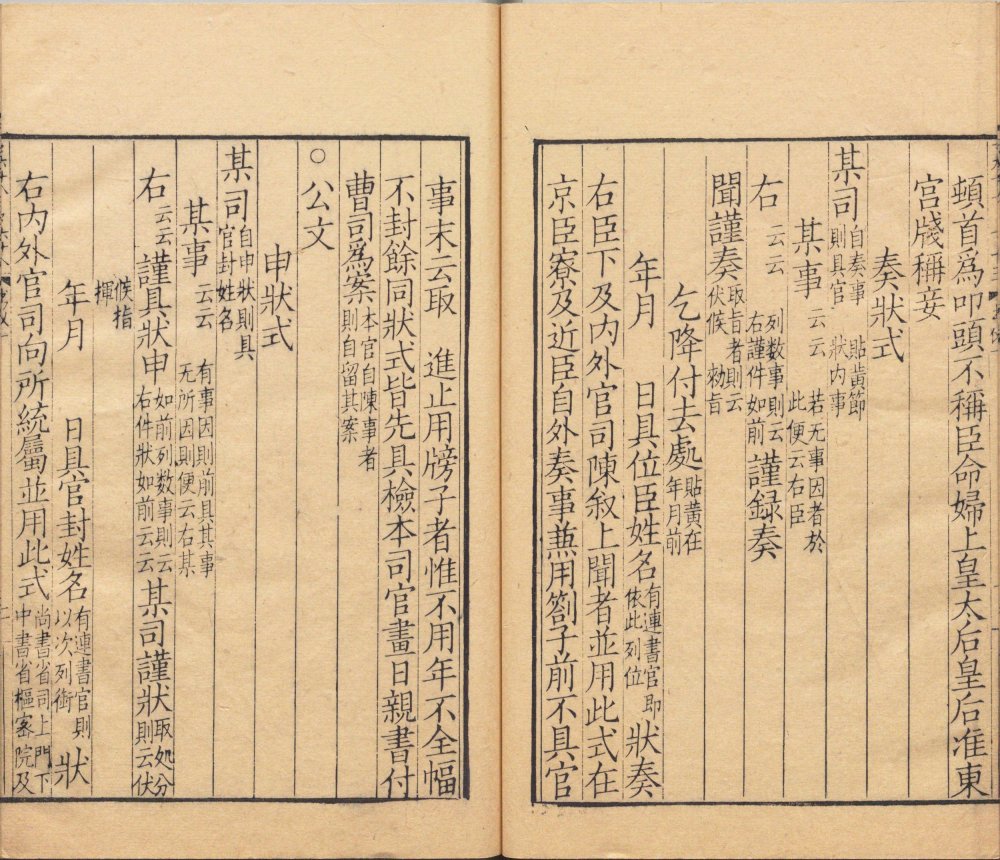 頓首爲叩頭不稱臣命婦上皇太后皇后准東
宫牋稱妾
奏狀式
某司自奏事則具官貼黃節狀内事
某事云云若无事因者於此便云右臣
右云云列數事則云右謹件如前謹録奏
聞謹奏取旨者則云伏候勑旨
乞降付去處貼黃在年月前
年月　日具位臣姓名有連書官即依此列位狀奏
右臣下及内外官司陳叙上聞者並用此式在
京臣寮及近臣自外奏事兼用劄子前不具官
事末云取　進止用牓子者惟不用年不全幅
不封餘同狀式皆先具檢本司官畫日親書付
曹司爲案本官自陳事者則自留其案
○公文
申狀式
某司自申狀則具官封姓名
某事云云有事因則前具其事无所因則便云右某
右云云謹具狀申如前列數事則云右件狀如前云云某司謹狀取処分則云伏
候指揮
年月　日具官封姓名有連書官則以次列銜狀
右内外官司向所統屬並用此式尚書省司上門下中書省樞密院及